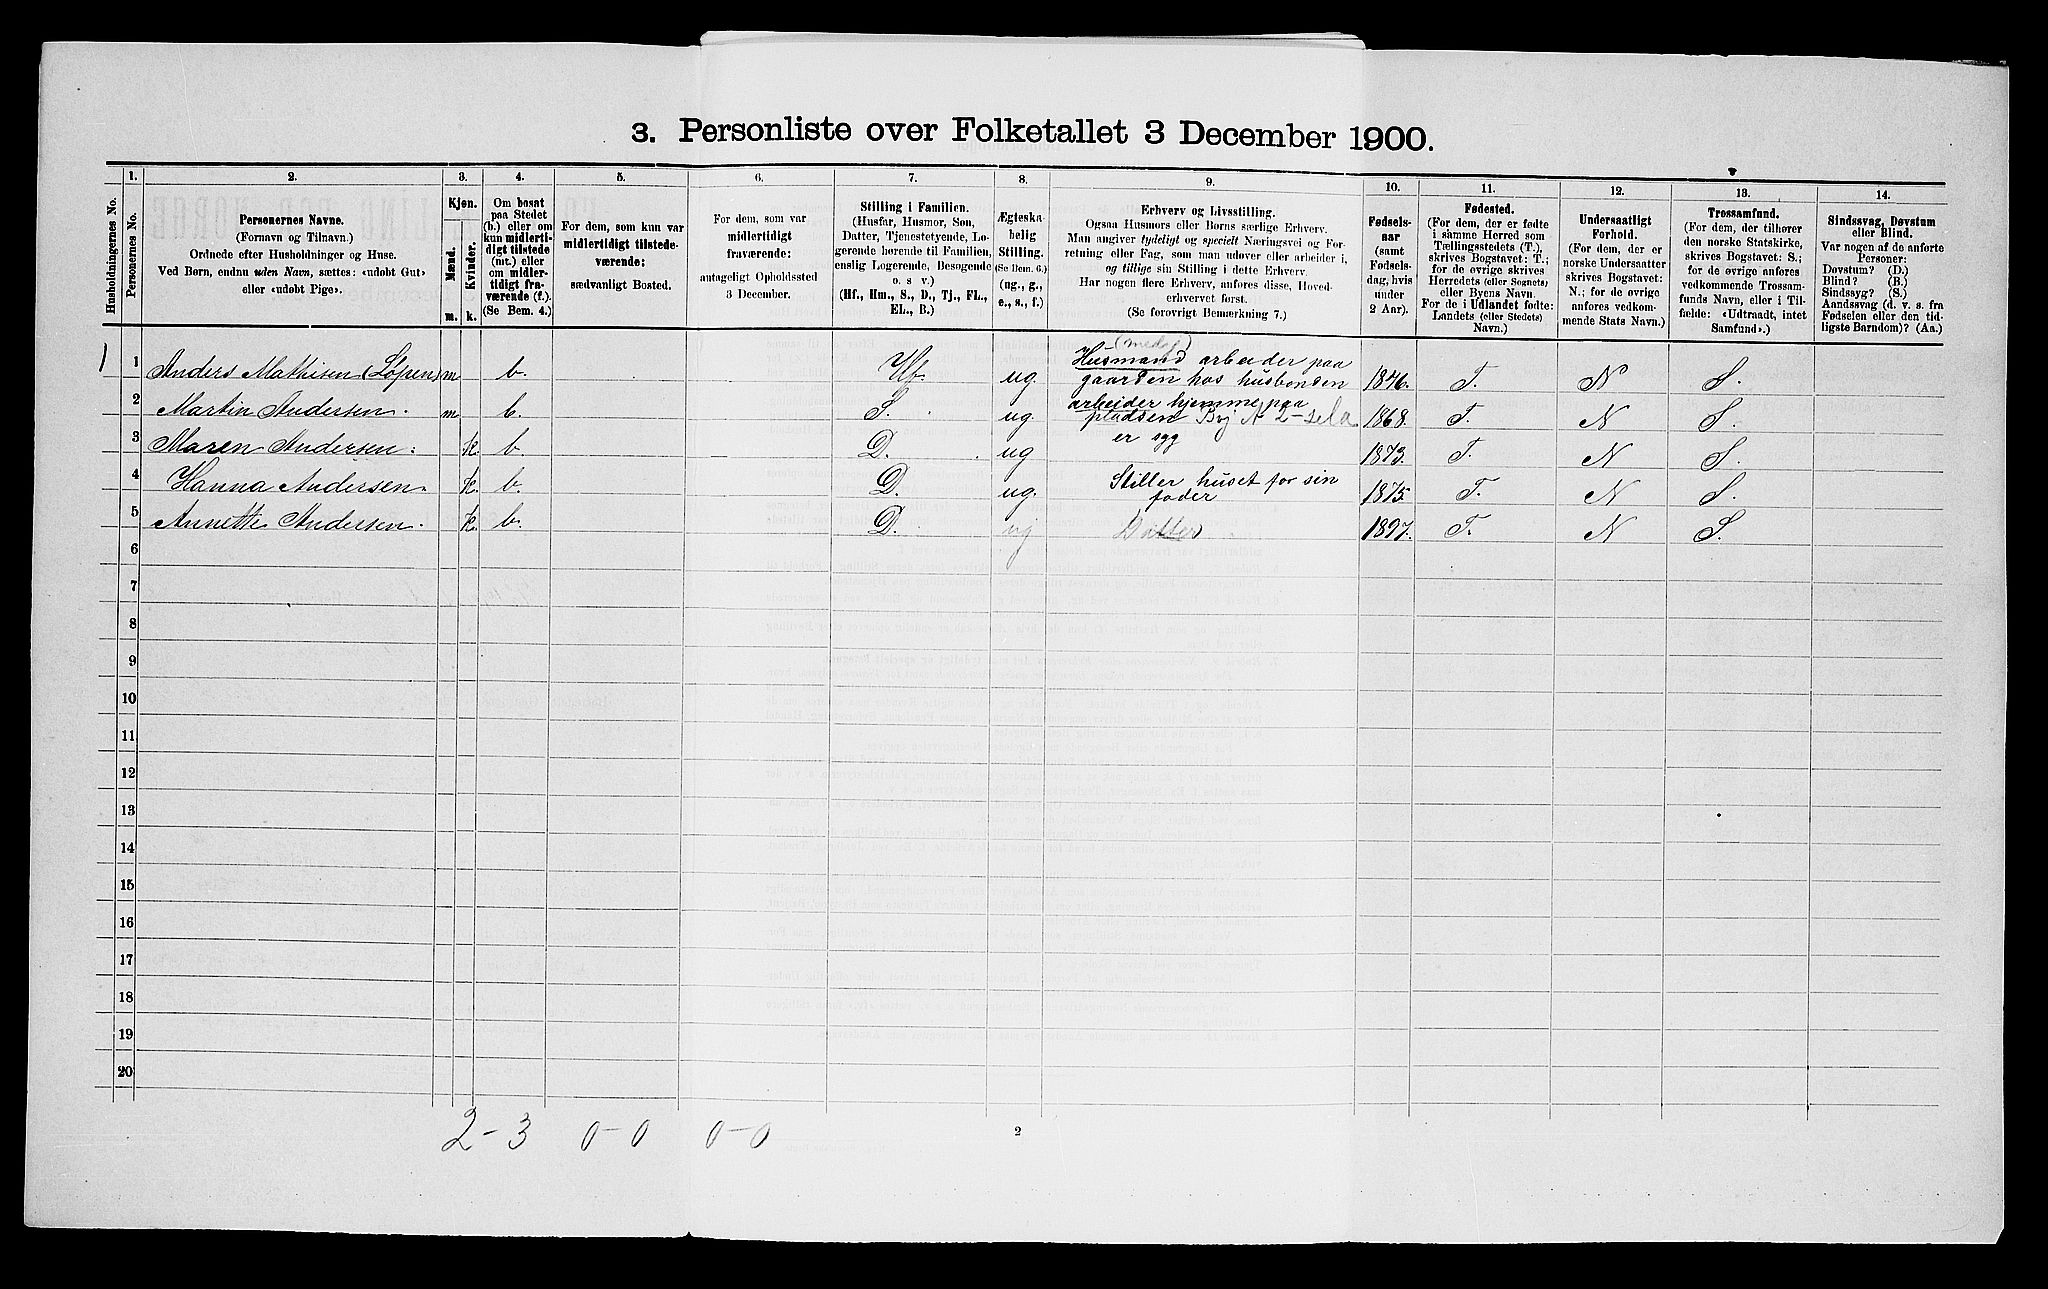 3. Personliste over Folketallet 3 December 1900.
1. 2. 3. 4. 5. 6. 7. 8. 9. 10. 11. 12. 13. 14.
Husholdningernes No.
Personernes No.
Personernes Navne.
(Fornavn og Tilnavn.)
Ordnede efter Husholdninger og Huse.
Ved Børn, endnu uden Navn, sættes: «udøbt Gut»
eller «udøbt Pige».
Kjøn.
Mænd.
Kvinder.
m. k.
Om bosat
paa Stedet
(b.) eller om
kun midlerti-
digt tilstede
(mt.) eller
om midler-
tidigt fra-
værende (f.).
(Se Bem. 4.)
For dem, som kun var
midlertidigt tilstede-
værende:
sædvanligt Bosted.
For dem, som var
midlertidigt
fraværende:
antageligt Opholdssted
3 December.
Stilling i Familien.
(Husfar, Husmor, Søn,
Datter, Tjenestetyende, Lo-
gerende hørende til Familien,
enslig Logerende, Besøgende
o. s v.)
(Hf., Hm., S., D., Tj., FL.,
EL., B.)
Ægteska-
belig
Stilling.
(Se Bem. 6.)
(ug., g.,
e., s., f.)
Erhverv og Livsstilling.
Ogsaa Husmors eller Børns særlige Erhverv.
Man angiver tydeligt og specielt Næringsvei og For-
retning eller Fag, som man udøver eller arbeider i,
og tillige sin Stilling i dette Erhverv.
Har nogen flere Erhverv, anføres disse, Hoved-
erhvervet først.
(Se forøvrigt Bemærkning 7.)
Fødsels-
aar
(samt
Fødsels-
dag, hvis
under
2 Aar).
Fødested.
(For dem, der er fødte
i samme Herred som
Tællingsstedets (T.),
skrives Bogstavet: T.;
for de øvrige skrives
Herredets (eller Sognets)
eller Byens Navn.
For de i Udlandet fødte:
Landets (eller Stedets)
Navn.)
Undersaatligt
Forhold.
(For dem, der er
norske Undersaatter
skrives Bogstavet:
N.; for de øvrige
anføres vedkom-
mende Stats Navn.)
Trossamfund.
(For dem, der tilhører
den norske Statskirke,
skrives Bogstavet: S.;
for de øvrige anføres
vedkommende Trossam-
funds Navn, eller i Til-
fælde: «Udtraadt, intet
Samfund».)
Sindssvag, Døvstum
eller Blind.
Var nogen af de anførte
Personer:
Døvstum? (D.)
Blind? (B.)
Sindssyg? (S.)
Aandssvag (d. v. s. fra
Fødselen eller den tid-
ligste Barndom)? (Aa.)
(medeg)
1 1 Anders Mathisen (Løpen) m b. Hf. ug. Husmand arbeider paa gaarden hos husbonden 1846. T. N S.
2 Martin Andersen. m b. S. ug arbeider hjemme paa pladsen 1868. T. N S.
3 Maren Andersen. k. b D. ug er syg 1873. T. N S.
4 Hanna Andersen. k. b. D. ug. Stiller huset for sin fader 1875. T. N S.
5 Annette Andersen. k. b. D. ug Datter 1897. T. N S.
6
7
8
9
10
11
12
13
14
15
16
17
18
19
20
2-3 0-0 0-0
2